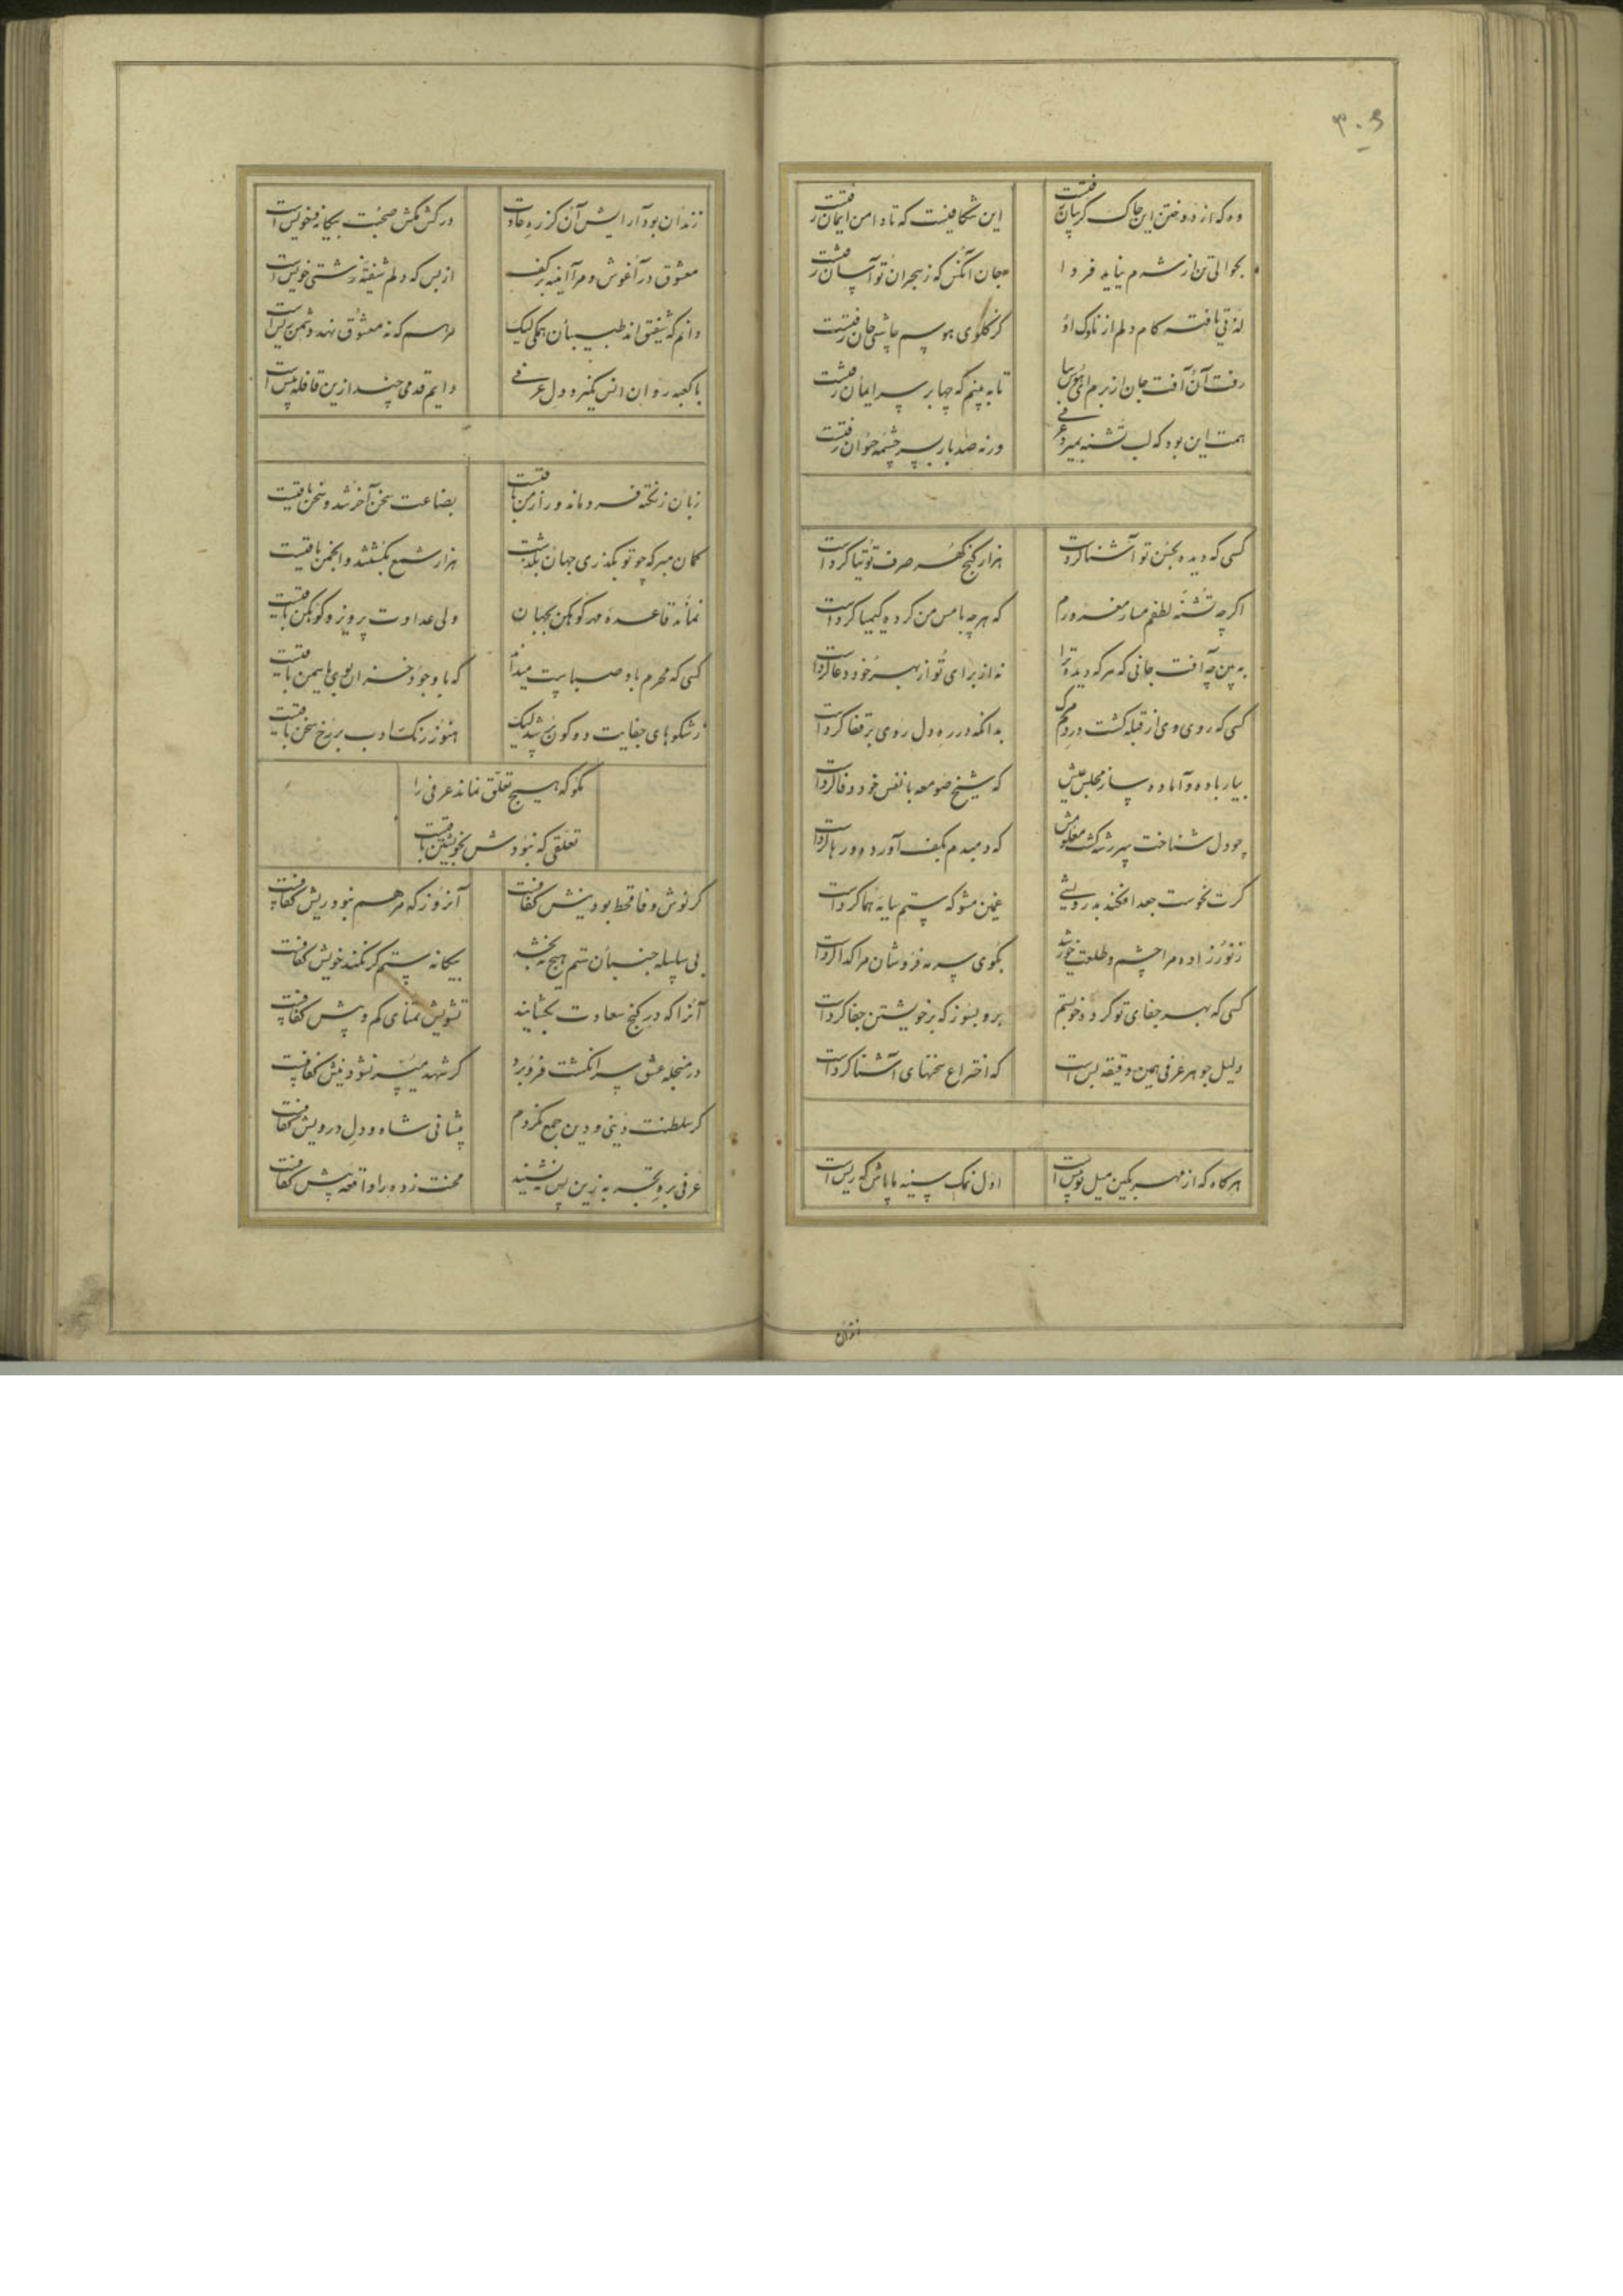 ۳۰۶
وه که از دوختن این چاک گریبان رفتست
این شکافیست که تا دامن ایمان رفتست
بحوالی تن از شرم نیاید فردا
جان آنکس که ز هجران تو آسان رفتست
لذتی یافته کام دلم از ناوک او
کز گلوی هوسم چاشنی جان رفتست
رفت آن آفت جان از برم ای هوش بیا
تا به بینم که چها بر سر ایمان رفتست
همت این بود که لب تشنه بمیرد عرفی
ورنه صد بار بسر چشمه حیوان رفتست
کسی که دیده بحسن تو آشنا کردست
هزار گنج گهر صرف توتیا کردست
اگرچه تشنه لطفم مساز مغرورم
که هرچه با مس من کرده کیمیا کردست
به بین چه آفت جانی که هرکه دیده ترا
نه از برای تو از بهر خود دعا کردست
کسی که روی وی از قبله گشت در مرگم
بدانکه در ره دل روی بر قفا کردست
بیار باده و آماده ساز مجلس عیش
که شیخ صومعه با نفس خود وفا کردست
چو دل شناخت سر رشته گشت معلومش
که دمبدم بکف آورده و رها کردست
گرت نحوست جغد افکند بدرویشی
غمین مشو که ستم سایه هما کردست
ز نور زاده مرا چشم و طلعت خورشید
بگوی سرمه فروشان مرا گدا کردست
کسی که بهر جفای تو کرده خو بستم
برو بسوز که بر خویشتن جفا کردست
دلیل جوهر عرفی همین دقیقه بس است
که اختراع سخنهای آشنا کردست
هرگاه که از مهر بکین میل تو بیش است
اول نمک سینه ما پاش که ریش است
زندان
زندان بود آرایش آن کز ره عادت
در کش مکش صحبت بیگانه و خویش است
معشوق در آغوش و مرا آینه بر کف
از بس که دلم شیفته زشتی خویش است
دانم که شفیق اند طبیبان همگی لیک
مرهم که نه معشوق نهد دشمن ریش است
با کعبه روان انس نگیرد دل عرفی
دایم قدمی چند ازین قافله پیش است
زبان ز نکته فرو ماند و راز من باقیست
بضاعت سخن آخر شد و سخن باقیست
گمان مبر که چو تو بگذری جهان بگذشت
هزار شمع بکشتند و انجمن باقیست
نماند قاعده مهر کوهکن بجهان
ولی عداوت پرویز و کوهکن باقیست
کسی که محرم باد صباست میداند
که با وجود خزان بوی یاسمن باقیست
ز شکوهای جفایت دو کون پر شد لیک
هنوز رنگ ادب بر رخ سخن باقیست
مگو که هیچ تعلق نماند عرفی را
تعلقی که نبودش بخویشتن باقیست
گر نوش وفا قحط بود نیش کفافست
آنروز که مرهم نبود ریش کفافست
بی سلسله جنبان ستم هیچ نه بخشد
بیگانه ستم گر نکند خویش کفافست
آنرا که در گنج سعادت بگشایند
تشویش تمنای کم و بیش کفافست
در منجله عشق سر انگشت فرو برد
گر شهد میسر نشود نیش کفافست
گر سلطنت دینی و دین جمع نکردم
پیشانی شاه و دل درویش کفافست
عرفی بره تجربه زین پس ننشیند
محنت زده را واقعه پیش کفافست